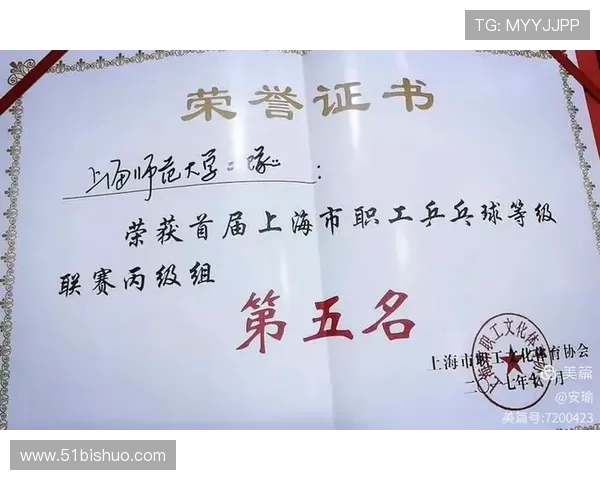 TG: MYYJJPP
荣誉证书
上海师范大学二队:
荣获首届上海市职工乒乓球等级
联赛丙级组
第五名
上海市职工文化体育协会
二〇一七年 月
美篇
@安瑜
美篇号:7200423
www.51bishuo.com